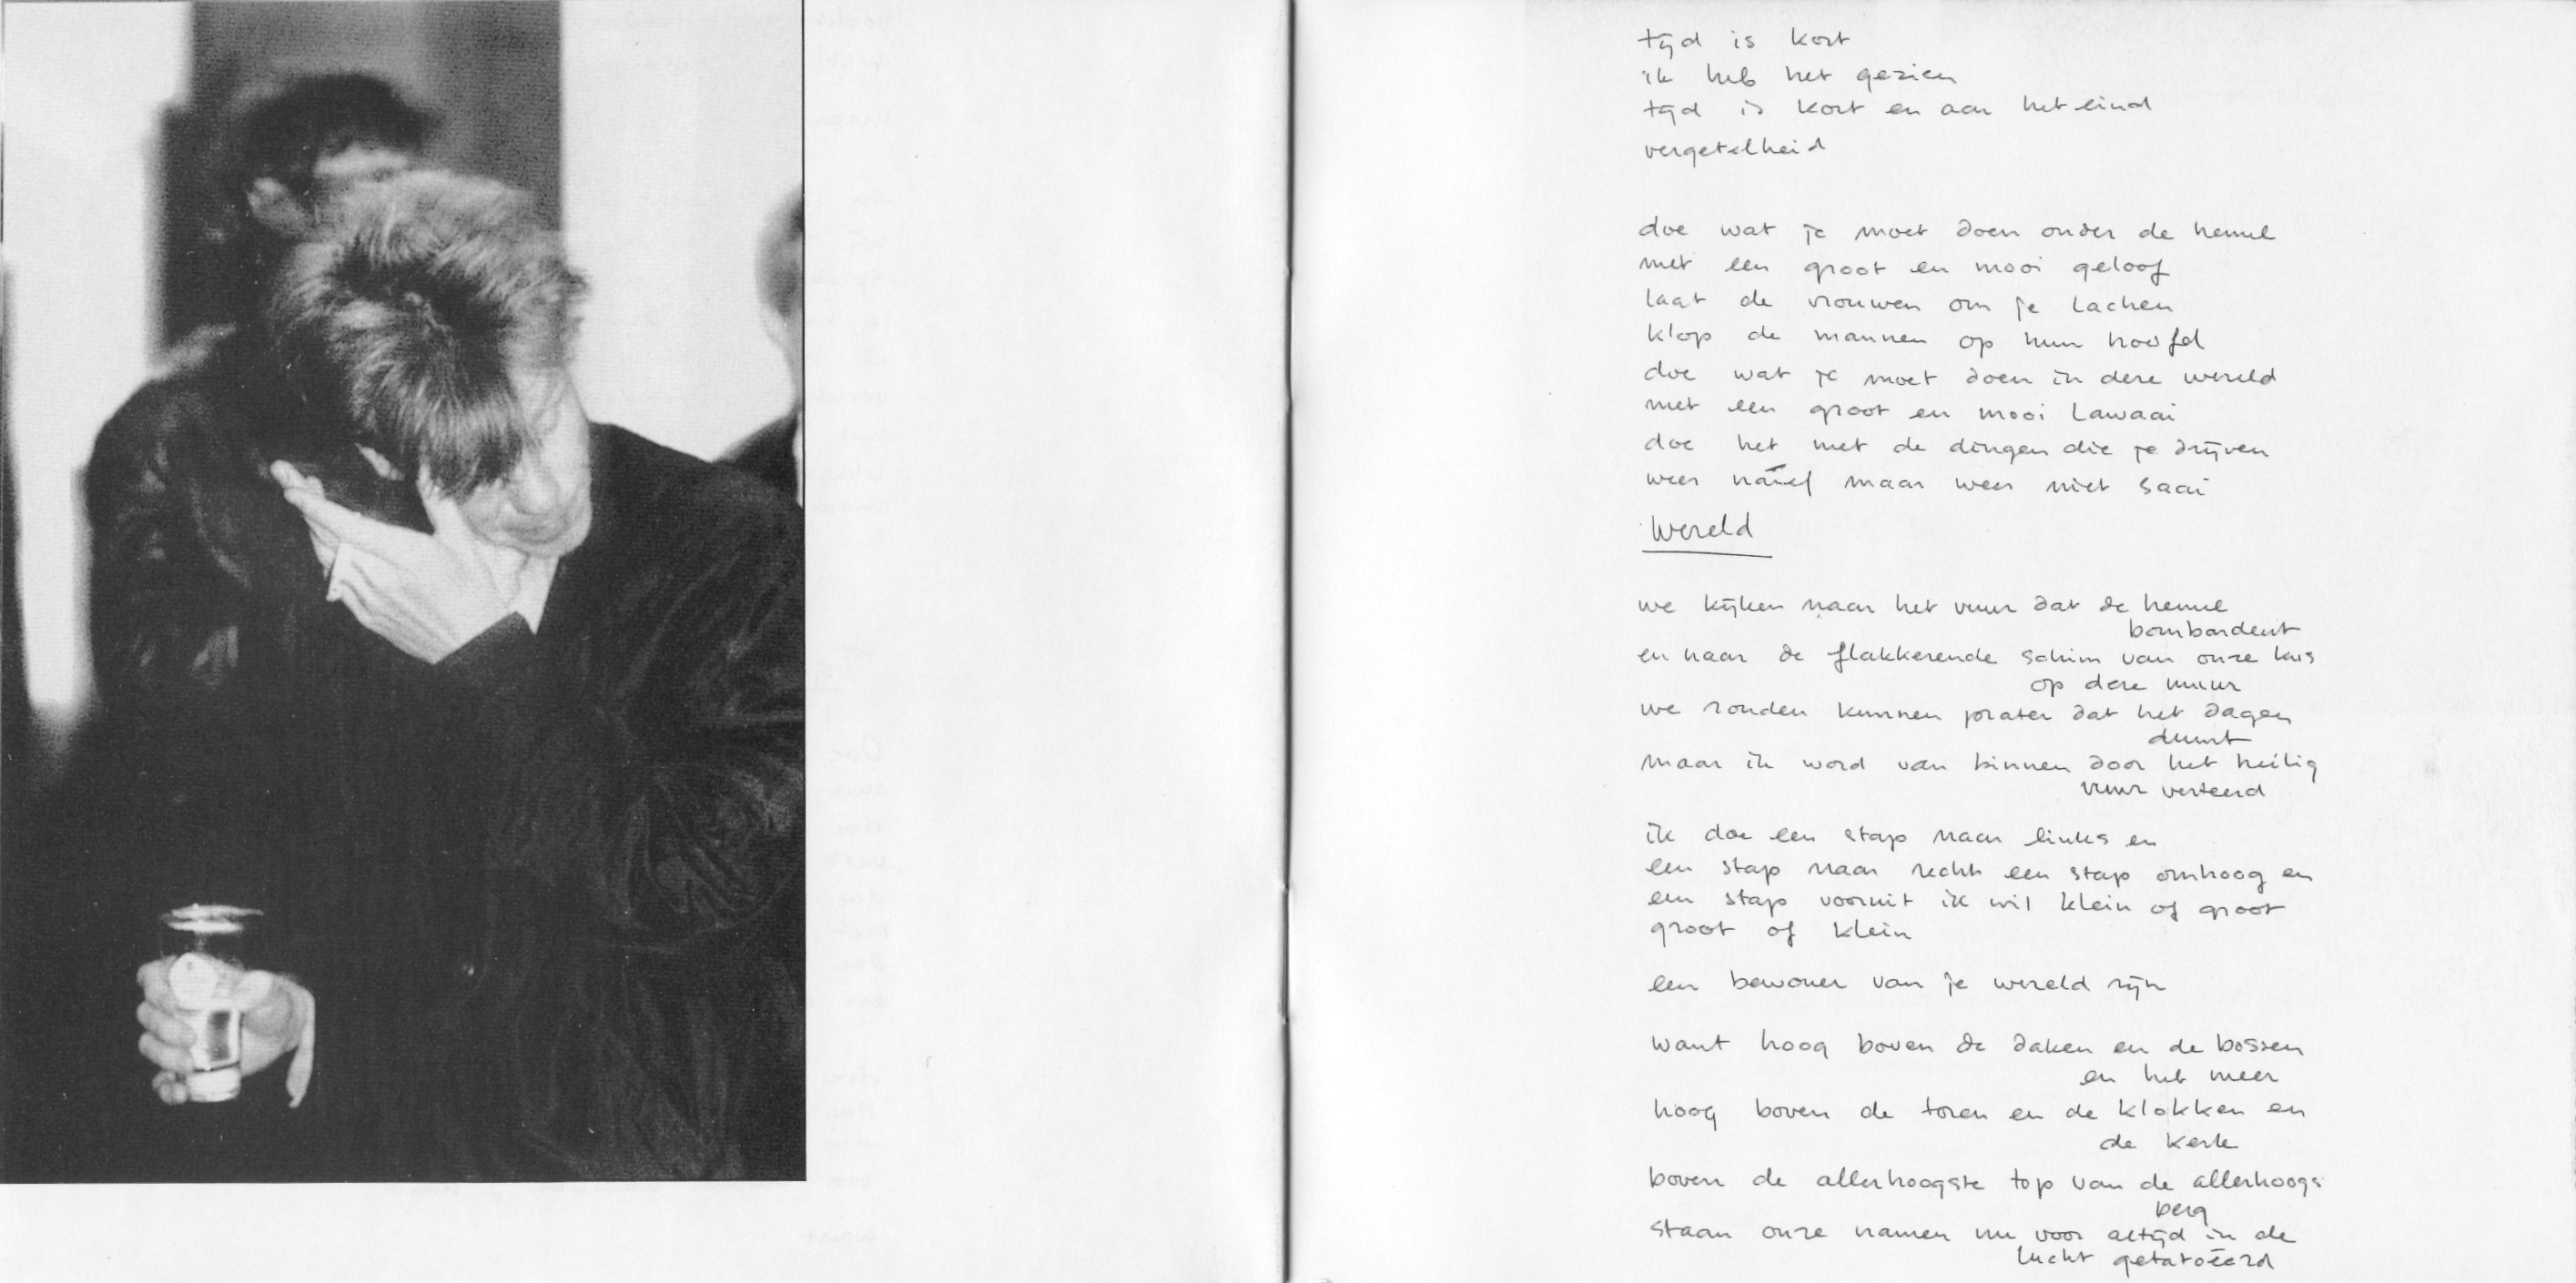 tijd is kort
ik heb het gezien
tijd is kort en aan het eind
vergetelheid
doe wat je moet doen onder de hemel
met een groot en mooi geloof
laat de vrouwen om je lachen
klop de mannen op hun hoofd
doe wat je moet doen in deze wereld
met een groot en mooi lawaai
doe het met de dingen die je drijven
wees naïef maar wees niet saai
Wereld
we kijken naar het vuur dat de hemel
bombardeert
en naar de flakkerende schim van onze kus
op deze muur
we zouden kunnen praten dat het dagen
duurt
maar ik word van binnen door het heilig
vuur verteerd
ik doe een stap naar links en
een stap naar rechts een stap omhoog en
een stap vooruit ik wil klein of groot
groot of klein
een bewoner van je wereld zijn
want hoog boven de daken en de bossen
en het meer
hoog boven de toren en de klokken en
de kerk
boven de allerhoogste top van de allerhoogs
berg
staan onze namen nu voor altijd in de
lucht getatoëerd